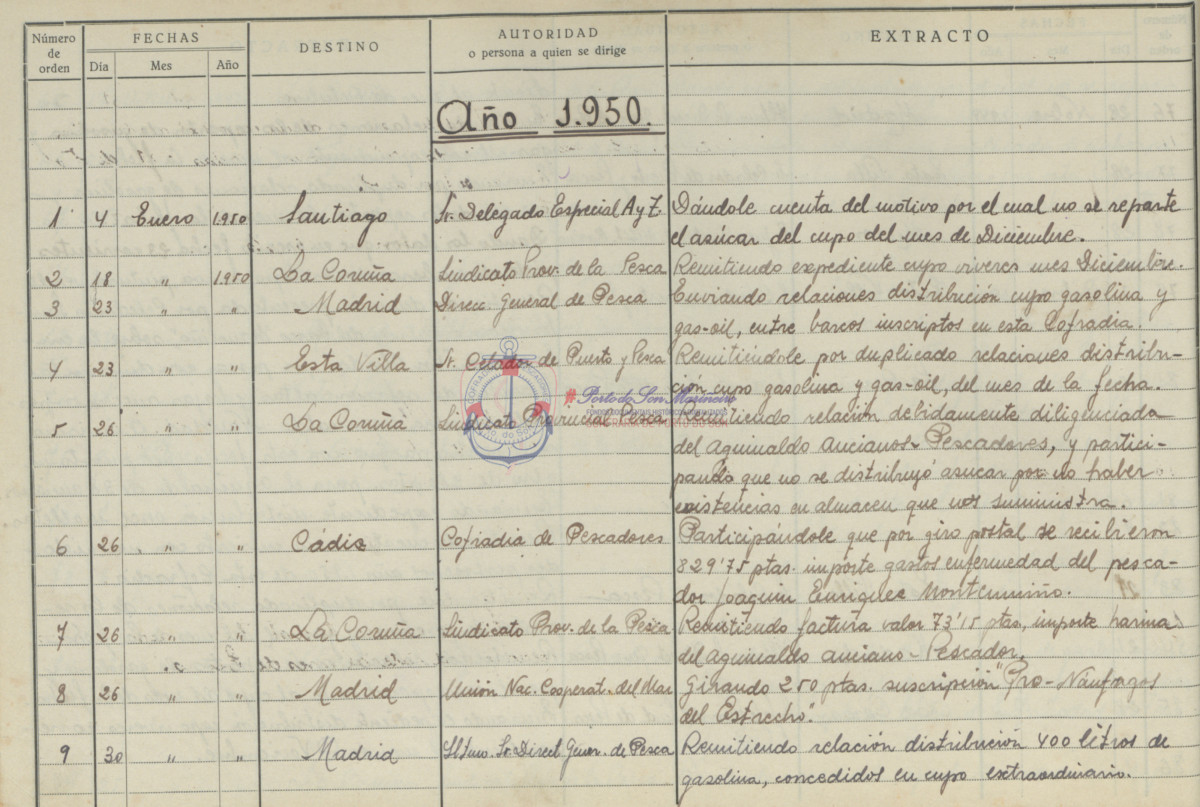 Número de orden
FECHAS
Día Mes Año
DESTINO
AUTORIDAD
o persona a quien se dirige
EXTRACTO
Año 1.950.
1 4 Enero 1.950 Santiago Sr. Delegado Especial A y T. Dándole cuenta del motivo por el cual no se reparte
el azúcar del cupo del mes de Diciembre.
2 18 " 1.950 La Coruña Sindicato Prov. de la Pesca Remitiendo expediente cupo viveres mes Diciembre.
3 23 " " Madrid Direcc. General de Pesca Enviando relaciones distribución cupo gasolina y
gas-oil, entre barcos inscriptos en esta Cofradia.
4 23 " " Esta Villa Sr. Celador de Puerto y Pesca Remitiéndole por duplicado relaciones distribu-
ción cupo gasolina y gas-oil, del mes de la fecha.
5 26 " " La Coruña Sindicato Provincial Pesca Remitiendo relación debidamente diligenciada
del Aguinaldo Ancianos Pescadores, y partici-
pando que no se distribuyó asucar por no haber
existencias en almacen que nos suministra.
6 26 " " Cádiz Cofradia de Pescadores Participándole que por giro postal se recibieron
829'75 ptas. importe gastos enfermedad del pesca-
dor Joaquin Enriquez Montemuiño.
7 26 " " La Coruña Sindicato Prov. de la Pesca Remitiendo factura valor 73'15 ptas, importe harina
del Aguinaldo anciano-Pescador.
8 26 " " Madrid Unión Nac. Cooperat. del Mar Girando 250 ptas. suscripción "Pro-Náufragos
del Estrecho".
9 30 " " Madrid Iltmo. Sr. Direct. Gener. de Pesca Remitiendo relación distribución 400 litros de
gasolina, concedidos en cupo extraordinario.
# Porto do Son Mariñeiro